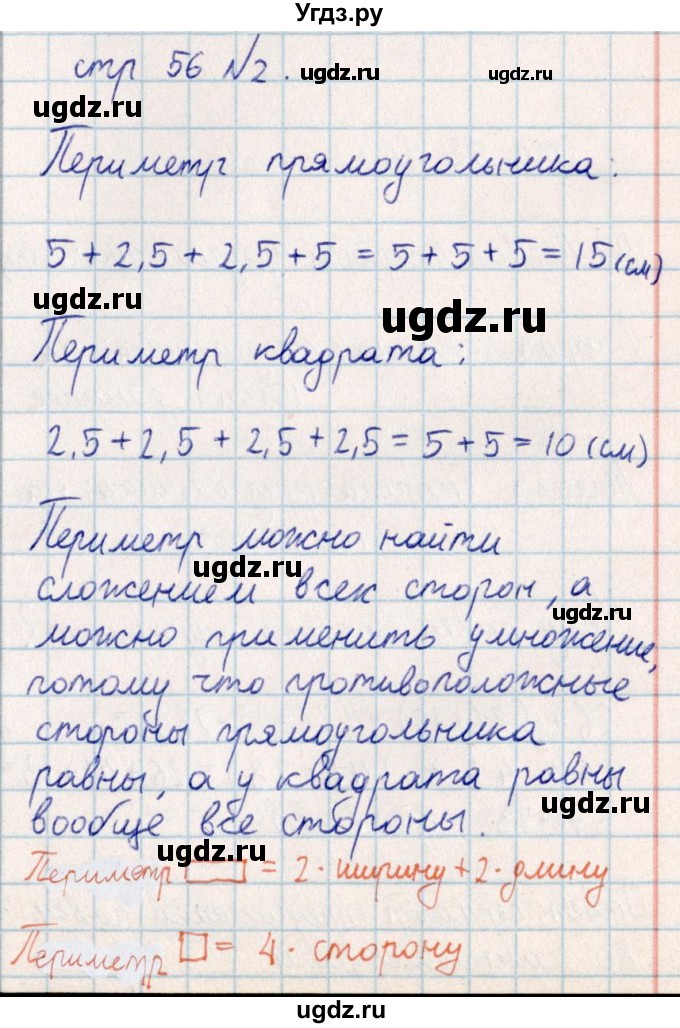 Угдз.ру
стр 56 №2.
ugdz.ru
ugdz.ru
ugdz.ru
Периметр прямоугольника:
5 + 2,5 + 2,5 + 5 = 5 + 5 + 5 = 15 (см)
ugdz.ru
ugdz.ru
Периметр квадрата:
2,5 + 2,5 + 2,5 + 2,5 = 5 + 5 = 10 (см)
Периметр можно найти
ugdz.ru
сложением всех сторон, а
ugdz.ru
можно применить умножение,
потому что противоположные
стороны прямоугольника
равны, а у квадрата равны
ugdz.ru
вообще все стороны.
ugdz.ru
Периметр ▭ = 2 · ширину + 2 · длину
Периметр □ = 4 · сторону
ugdz.ru